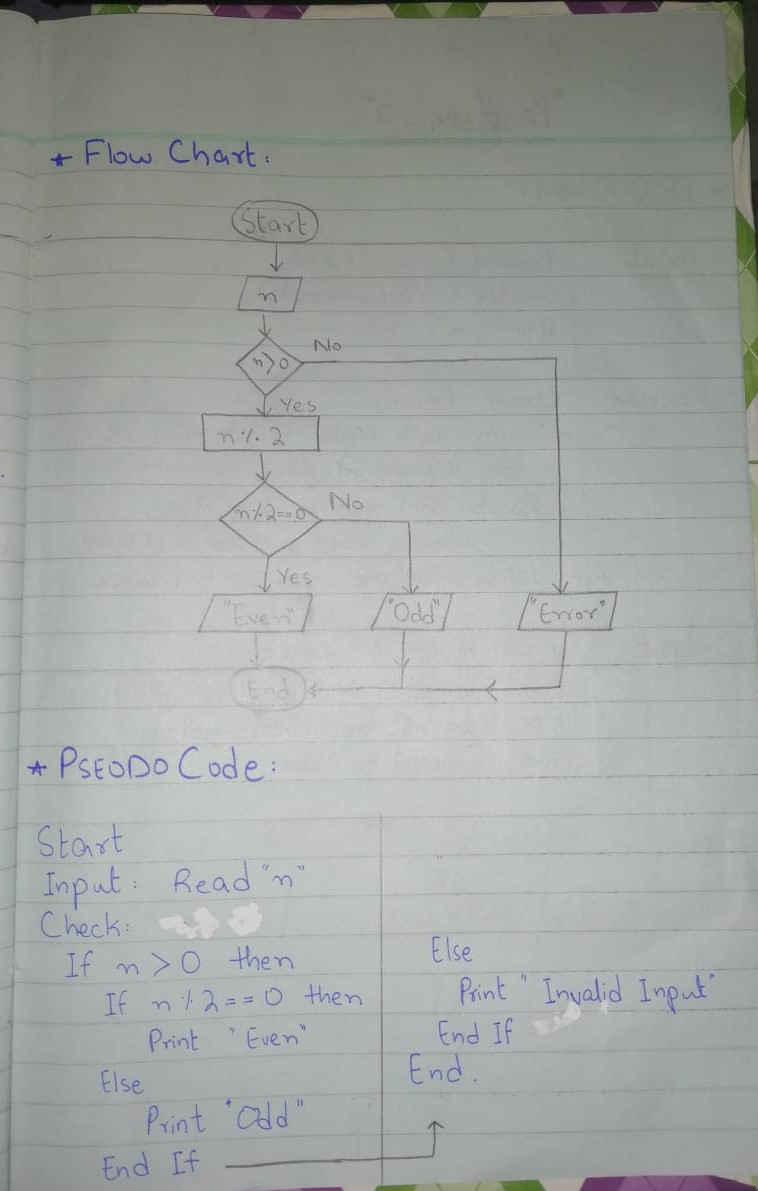 * Flow Chart:
Start
n
n>0
No
Yes
n % 2
n%2==0
No
Yes
"Even"
"Odd"
"Error"
End
* PSEODO Code:
Start
Input: Read "n"
Check:
If n > 0 then
If n % 2 == 0 then
Print "Even"
Else
Print "Odd"
End If
Else
Print "Invalid Input"
End If
End.